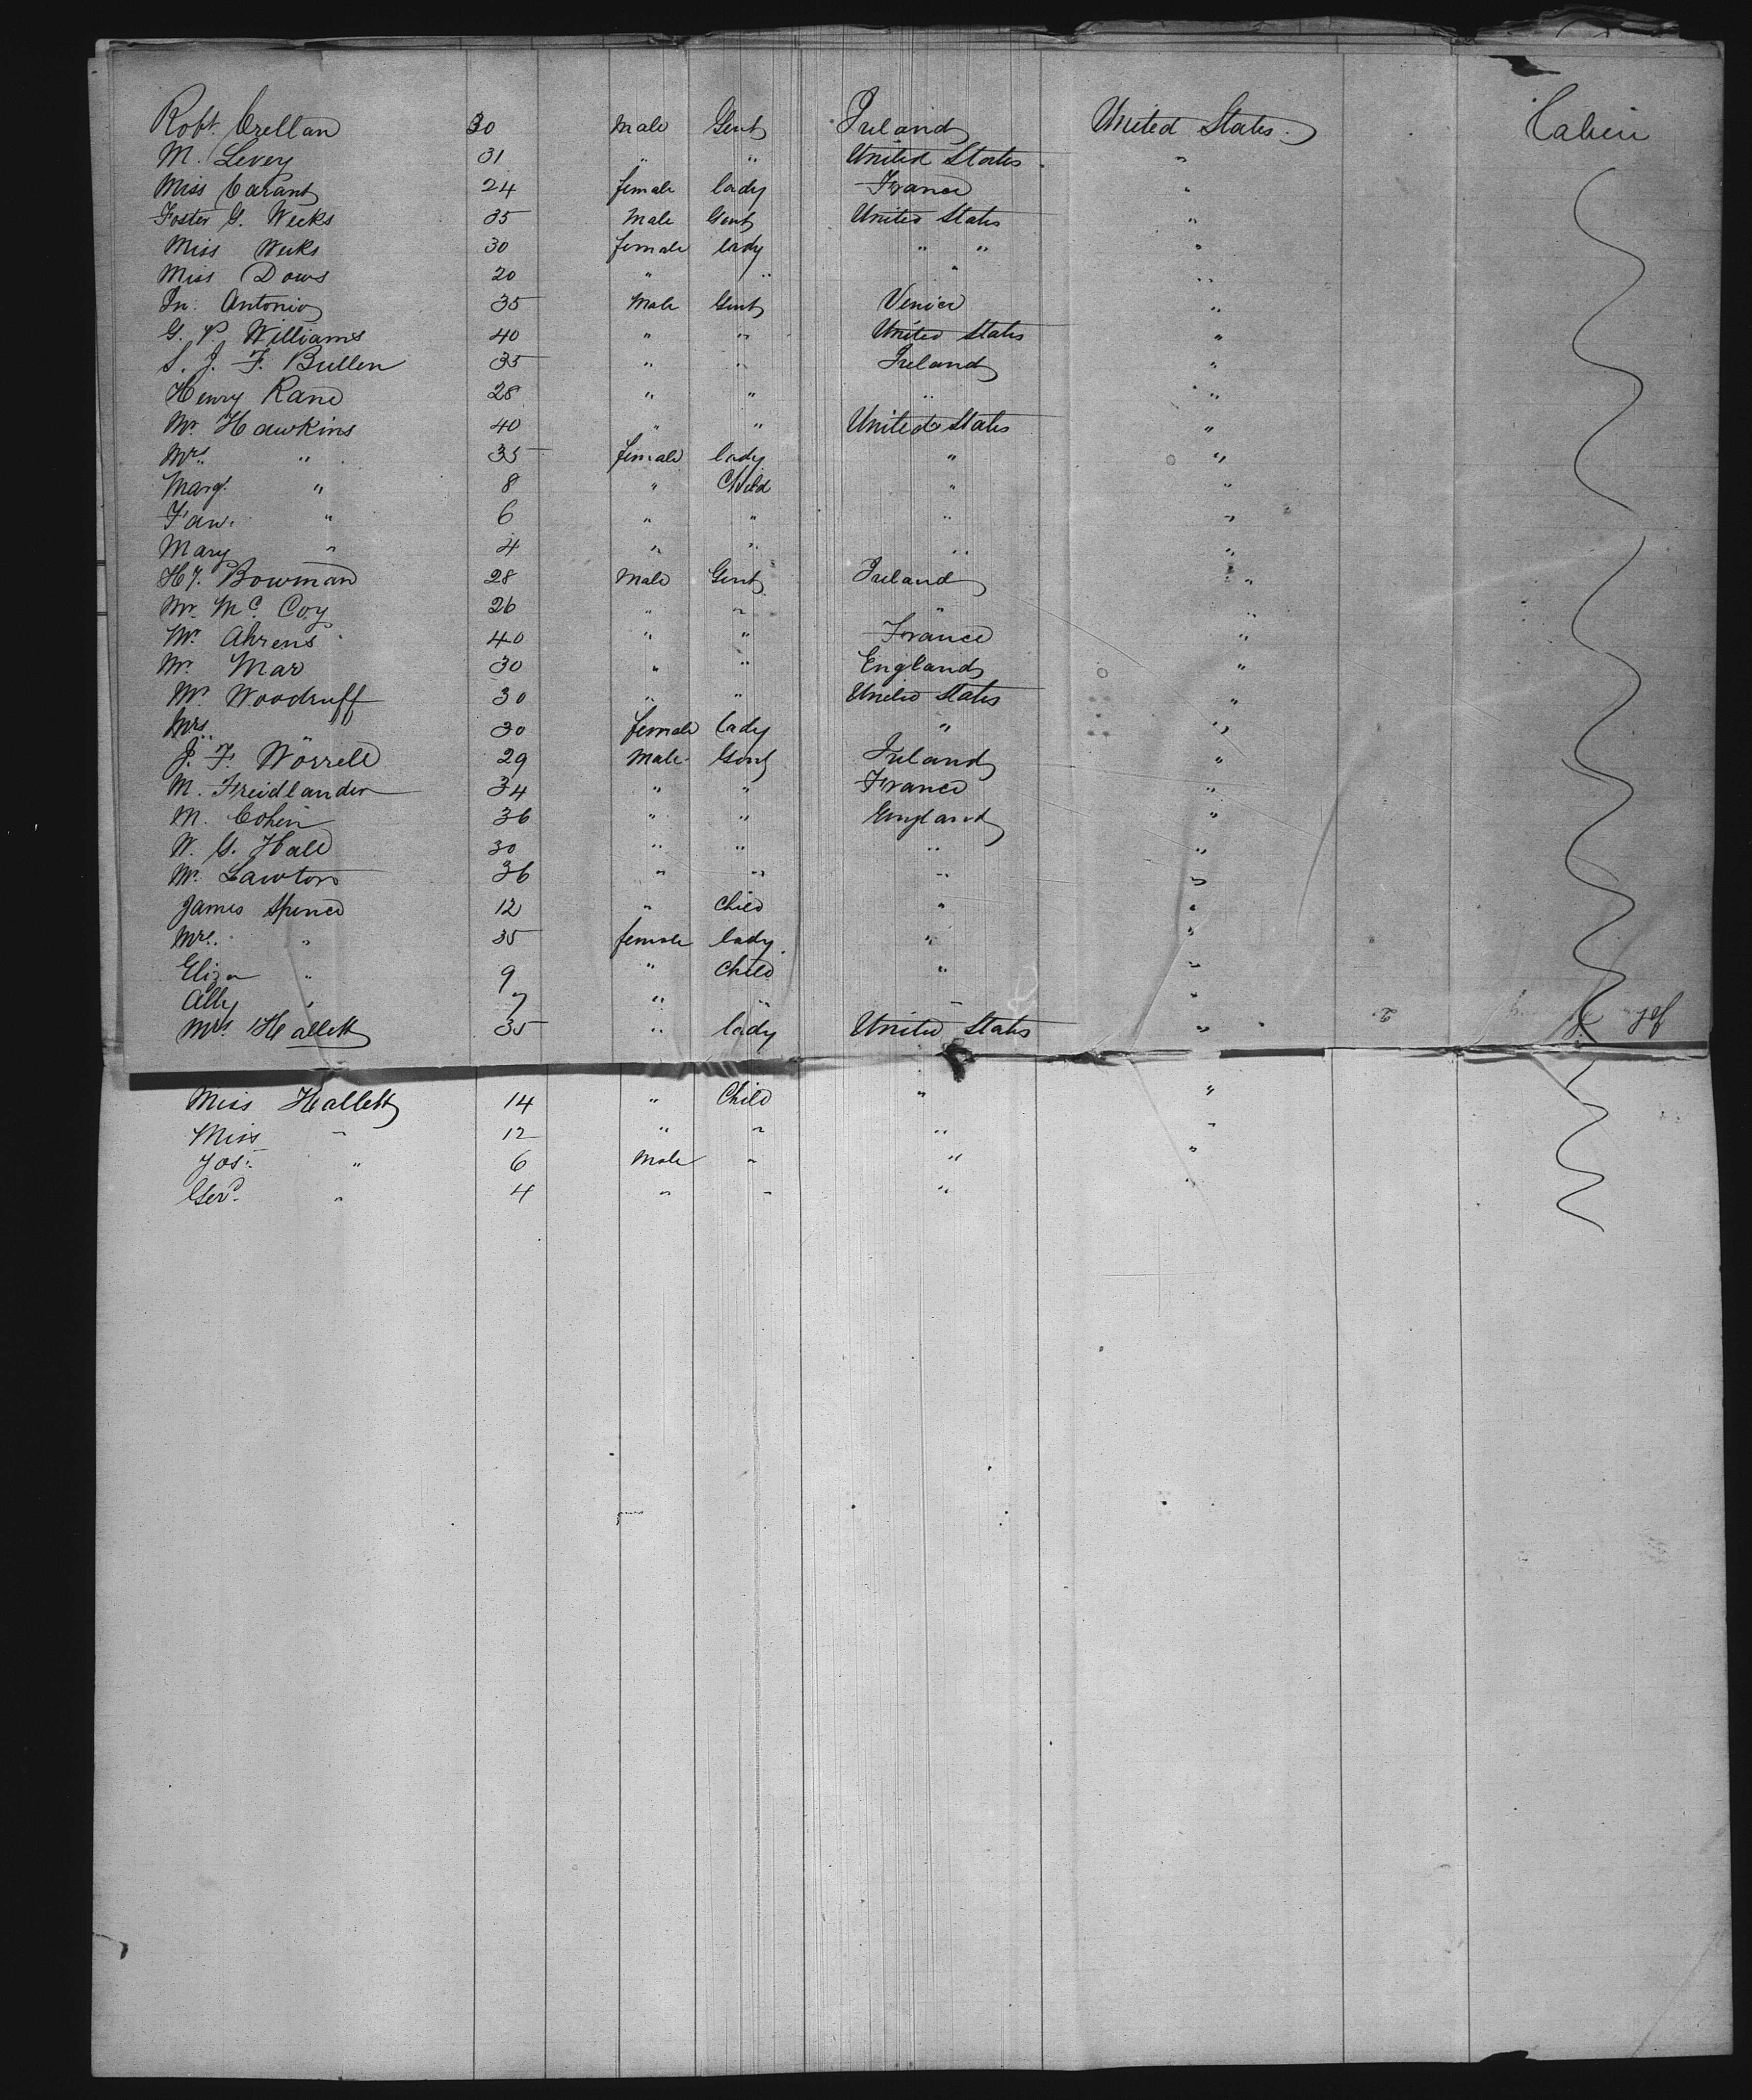 Robt. Crellan 30 Male Gent Ireland United States Cabin
M. Levey 31 " " United States "
Miss Carant 24 female lady France "
Foster G. Weeks 35 Male Gent United States "
Miss Weeks 30 female lady " " "
Miss Dows 20 " " " "
Jn. Antonio 35 Male Gent Venice "
G. P. Williams 40 " " United States "
S. J. F. Bullen 35 " " Ireland "
Henry Kane 28 " " " "
Mr. Hawkins 40 " " United States "
Mrs. " 35 female lady " "
Margt. " 8 " Child " "
Fan. " 6 " " " "
Mary " 4 " " " "
Hy. Bowman 28 Male Gent Ireland "
Mr. McCoy 26 " " " "
Mr. Ahrens 40 " " France "
Mr. Mar 30 " " England "
Mr. Woodruff 30 " " United States "
Mrs. " 30 female lady " "
J. F. Worrell 29 Male Gent Ireland "
M. Freidlander 34 " " France "
M. Cohen 36 " " England "
W. G. Hall 30 " " " "
Mr. Lawton 36 " " " "
James Spence 12 " Child " "
Mrs. " 35 female lady " "
Eliza " 9 " Child " "
Ally " 7 " " " "
Mrs. Hallett 35 " lady United States "
Miss Hallett 14 " Child " "
Miss " 12 " " " "
Jos. " 6 Male " " "
" 4 " " " "